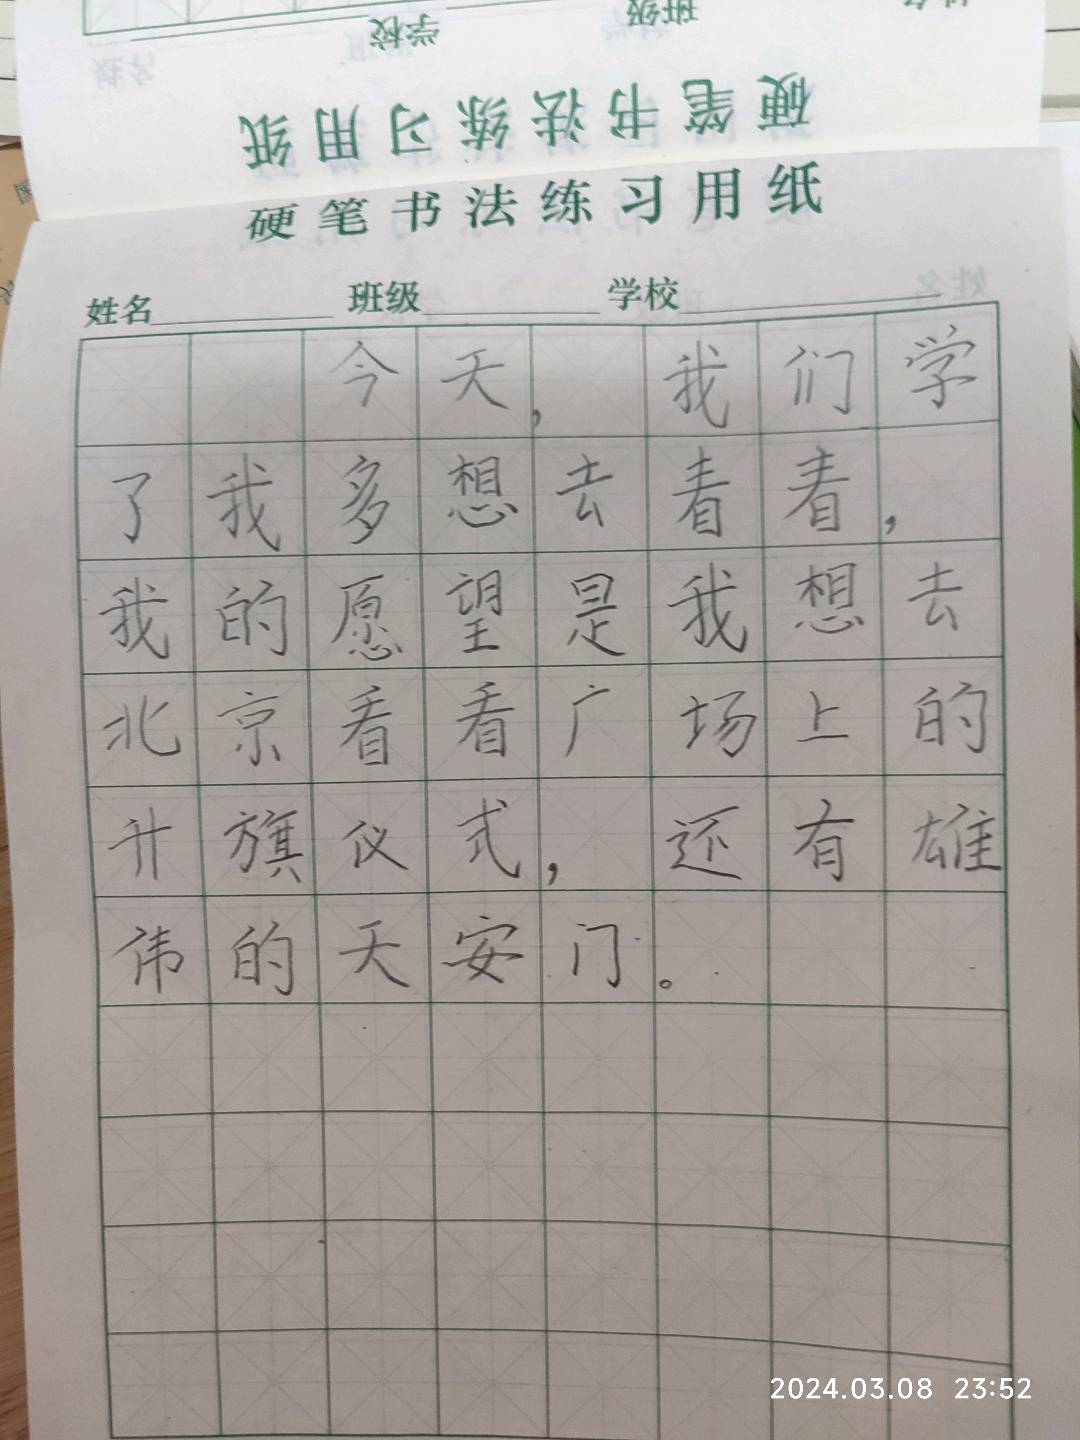 学校 班级 姓名
硬笔书法练习用纸
硬笔书法练习用纸
姓名 班级 学校
今天，我们学
了我多想去看看，
我的愿望是我想去
北京看看广场上的
升旗仪式，还有雄
伟的天安门。
2024.03.08 23:52